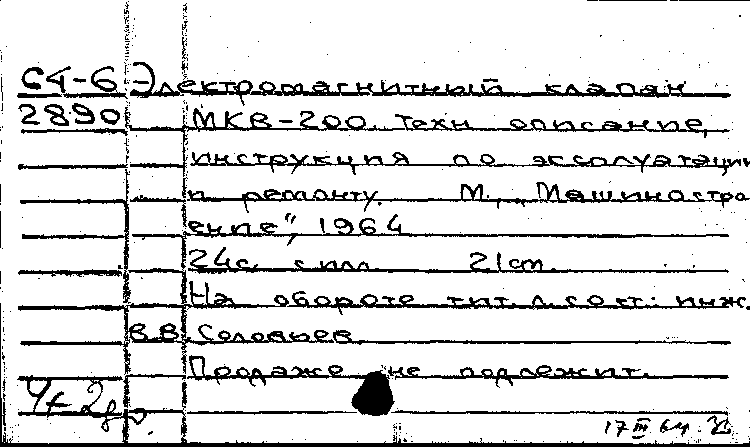 64-6 Электромагнитный клапан
2890 МКВ-200. Техн. описание,
инструкция по эксплуатации
и ремонту. М., „Машиностро
ение", 1964
24с. с илл. 21cm.
На обороте тит. л. сост.: инж.
В.В. Соловьев.
Продаже не подлежит.
17 III 64.